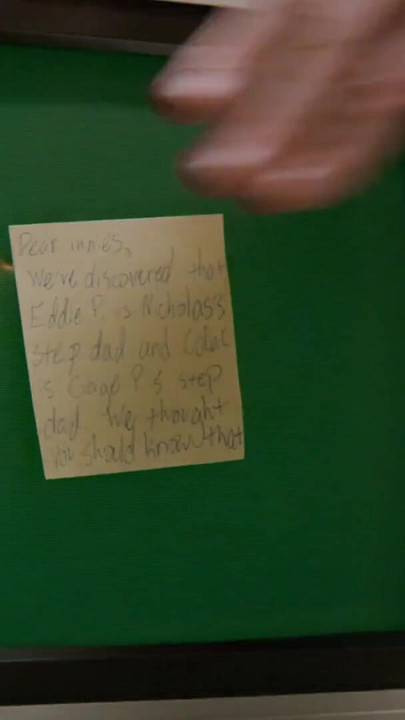 Dear innies,
We've discovered that
Eddie P. is Nicholas's
step dad and
is Gage P's step
dad We thought
you should know that